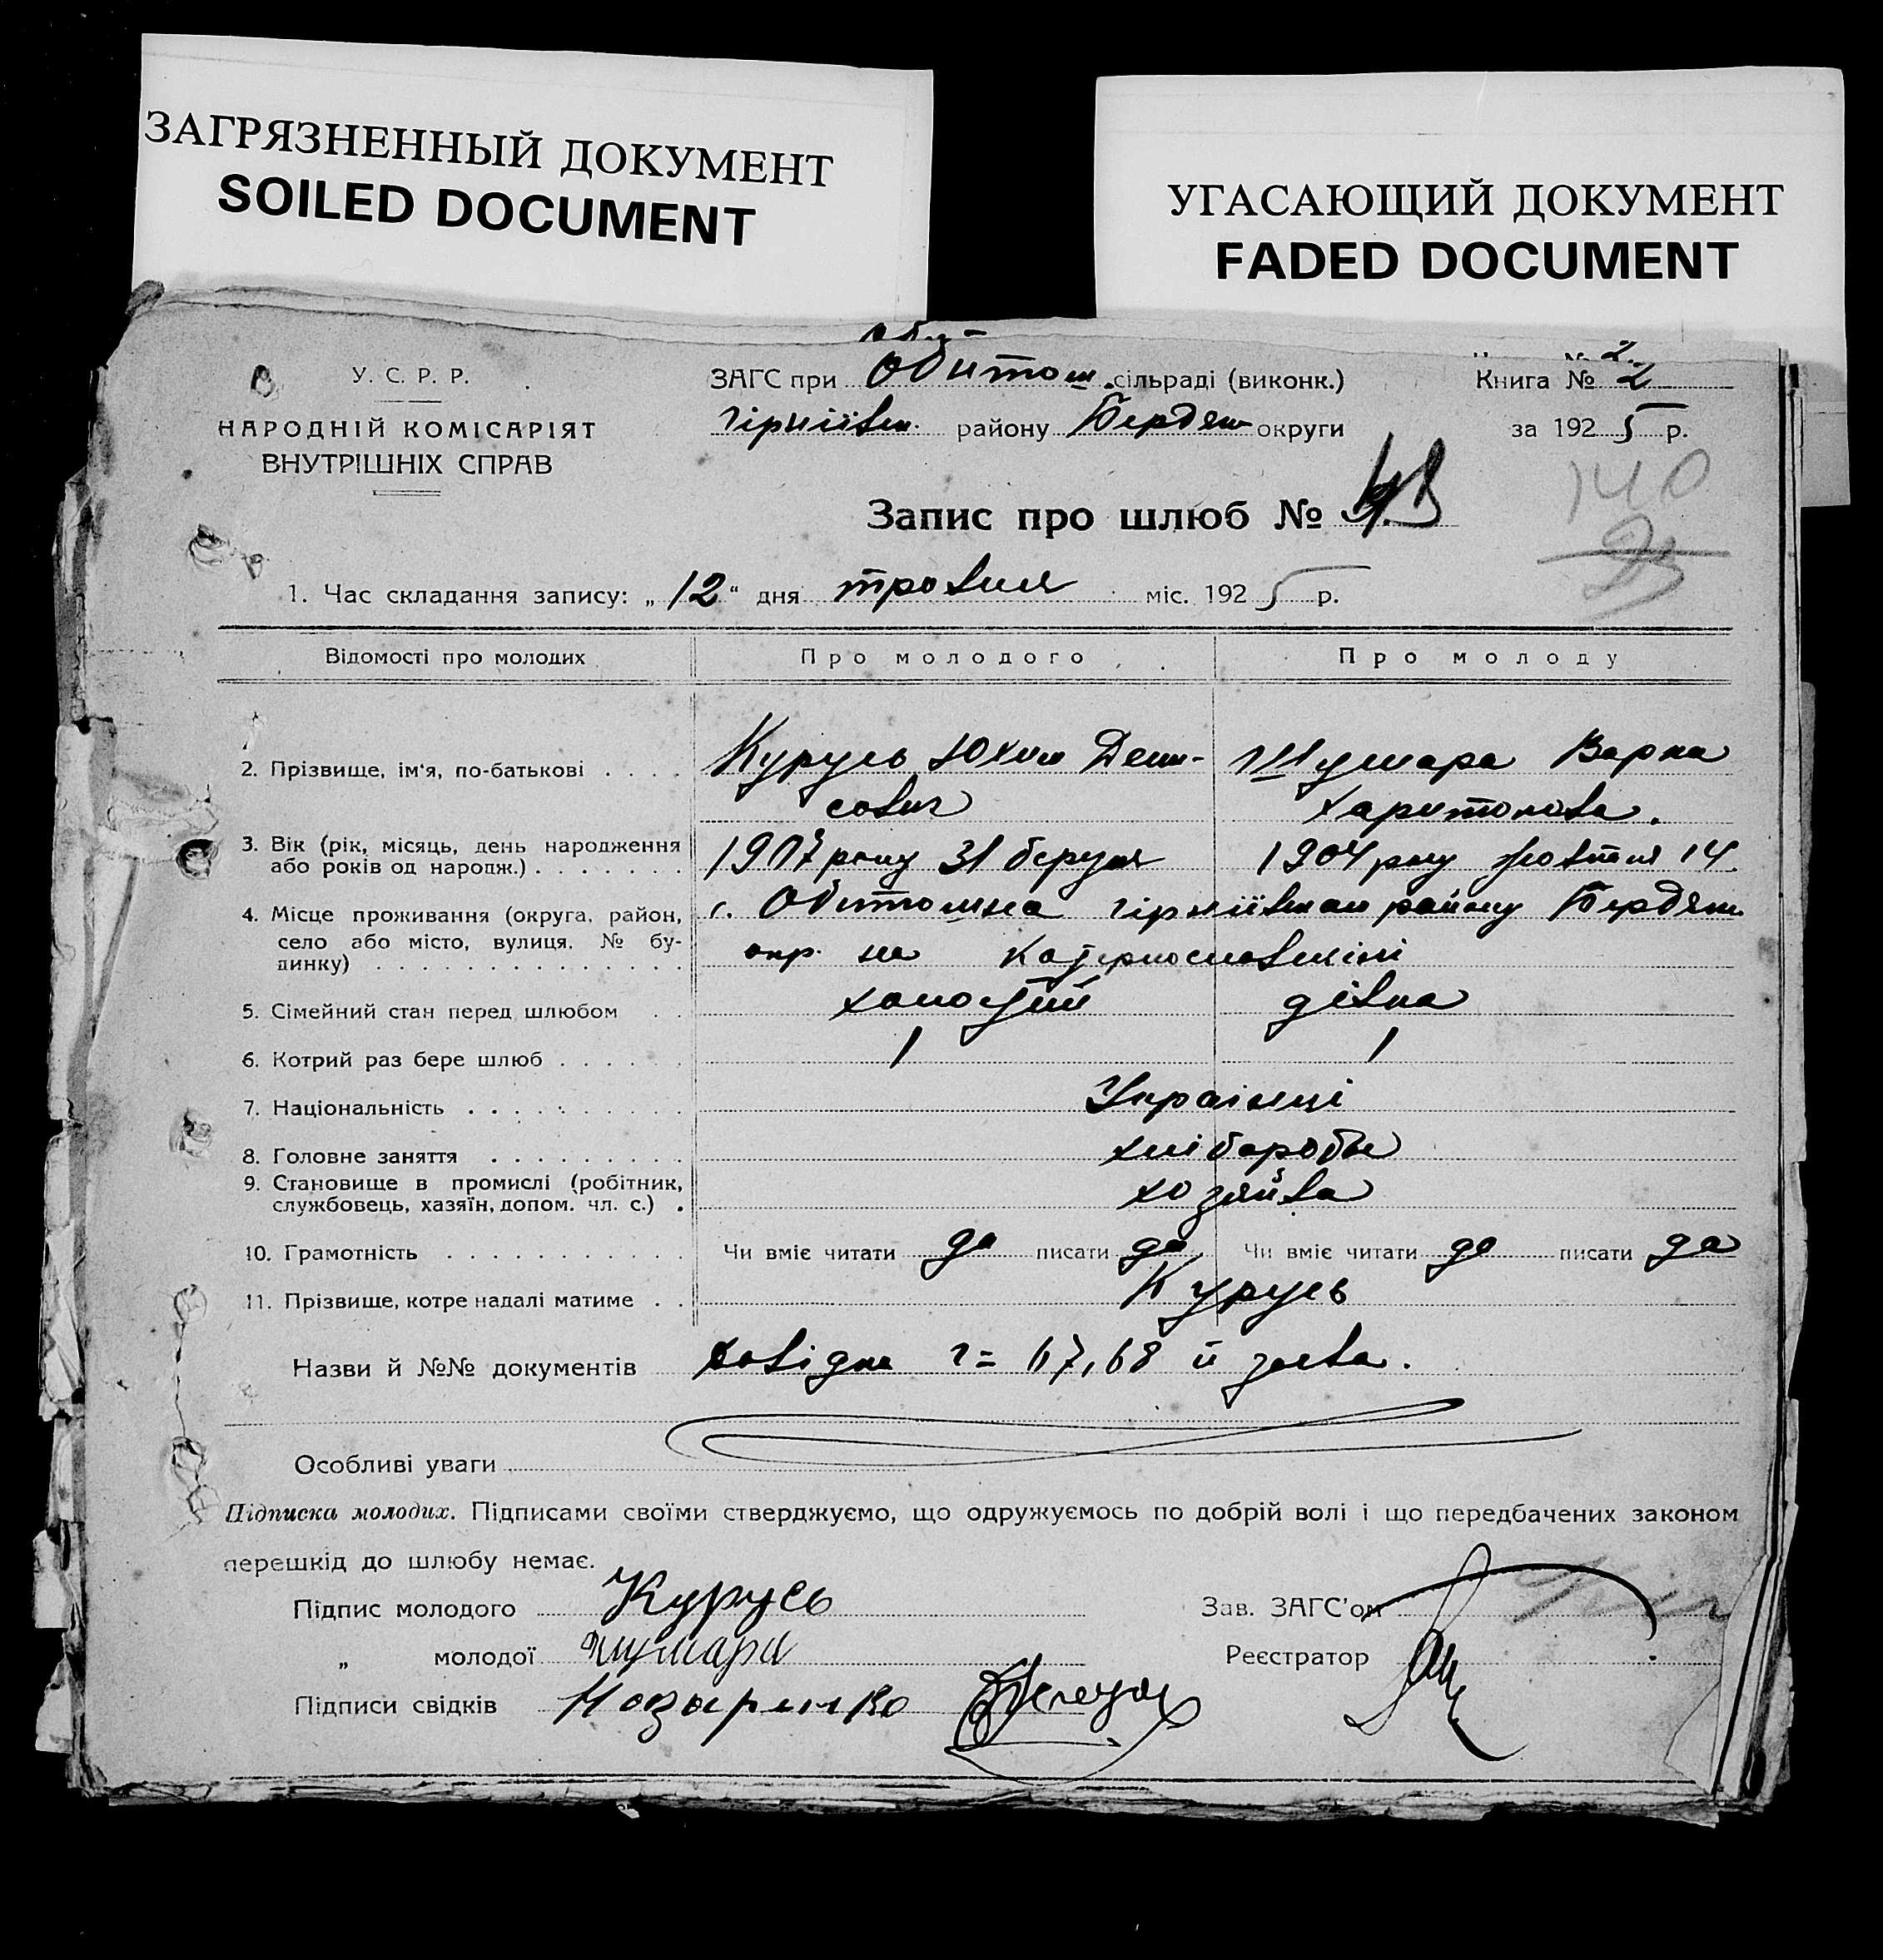 ЗАГРЯЗНЕННЫЙ ДОКУМЕНТ
SOILED DOCUMENT
УГАСАЮЩИЙ ДОКУМЕНТ
FADED DOCUMENT
У. С. Р. Р.
НАРОДНІЙ КОМІСАРІЯТ
ВНУТРІШНІХ СПРАВ
ЗАГС при Обиточ. сільраді (виконк.)
районy Бердян округи
Книга № 2
за 1925 р.
Запис про шлюб №
140
1. Час складання запису: „12“ дня травня міс. 1925 р.
Відомості про молодих
Про молодого
Про молоду
2. Прізвище, ім'я, по-батькові Курусь Юхим Дени-
сович
Шумара Варка
Харитонова.
3. Вік (рік, місяць, день народження
або років од народж.) 1907 року 31 березня
1904 року жовтня 14
4. Місце проживання (округа, район,
село або місто, вулиця, № бу-
динку)
с. Обиточна району Бердян.
окр. на Катеринославщині
5. Сімейний стан перед шлюбом холостий дівка
6. Котрий раз бере шлюб 1 1
7. Національність Українці
8. Головне заняття хлібороби
9. Становище в промислі (робітник,
службовець, хазяїн, допом. чл. с.) хозяйва
10. Грамотність Чи вміє читати да писати да Чи вміє читати да писати да
11. Прізвище, котре надалі матиме Курусь
Назви й №№ документів довідка 67, 68 й
Особливі уваги
Підписка молодих. Підписами своїми стверджуємо, що одружуємось по добрій волі і що передбачених законом
перешкід до шлюбу немає.
Підпис молодого Курусь
„ молодої Шумара
Підписи свідків
Зав. ЗАГС'ом
Реєстратор